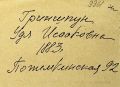 Гринштун
Удл Исааковна
1883.
Потемкинская 92